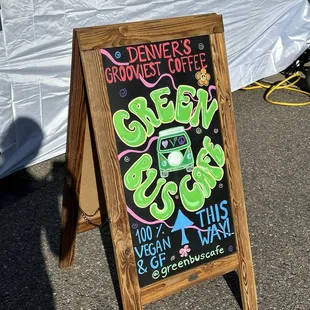 DENVER'S
GROOVIEST COFFEE
GREEN
BUS CAFE
100%
VEGAN
& GF
THIS
WAY!
@greenbuscafe